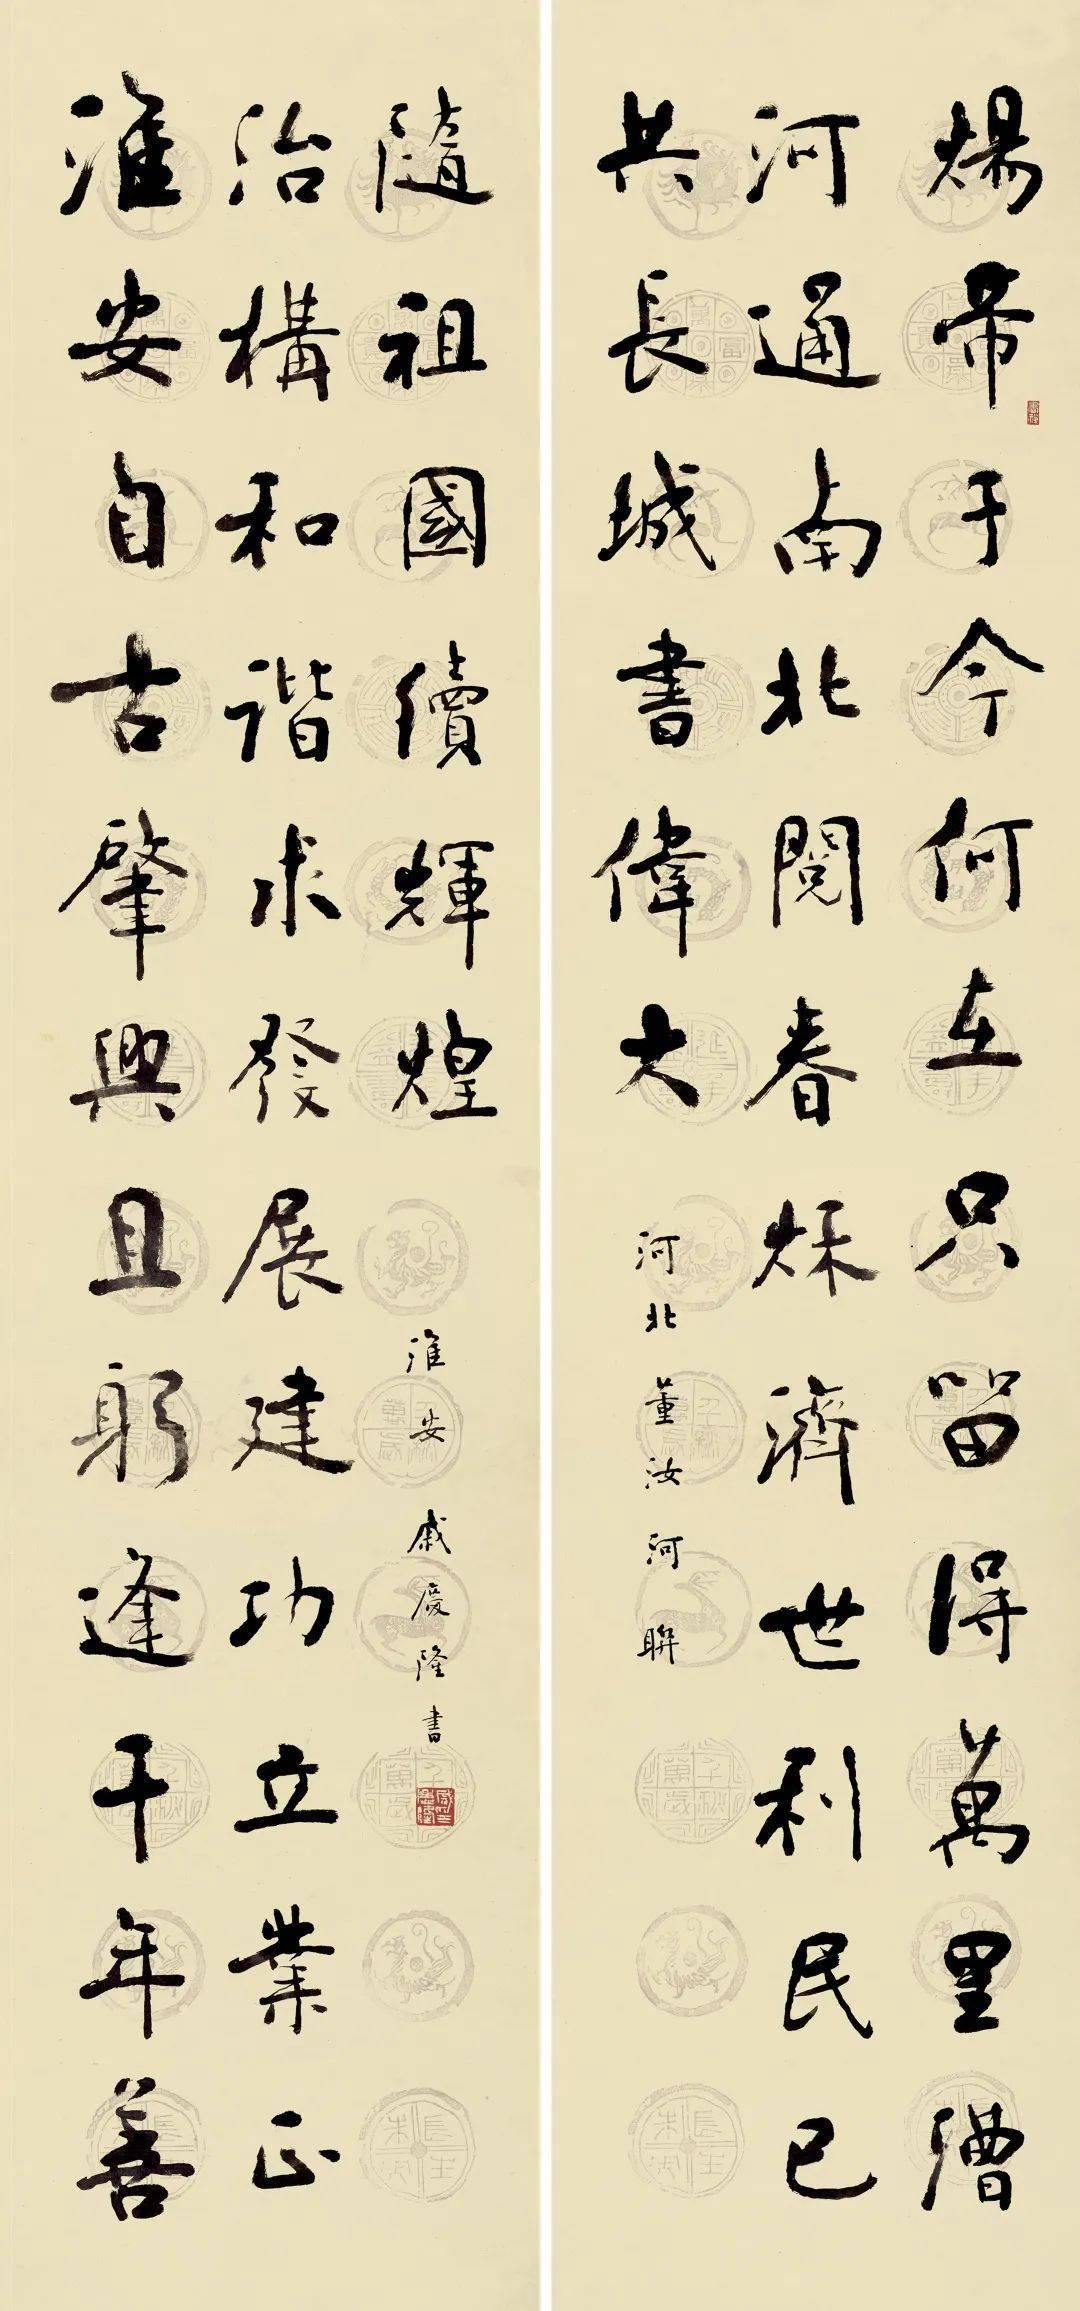 煬帝于今何在只留得萬里漕
河通南北閱春秋濟世利民已
共長城書偉大
河北董汝河聯
淮安自古肇興且躬逢千年善
治構和諧求發展建功立業正
隨祖國續輝煌
淮安戚慶隆書